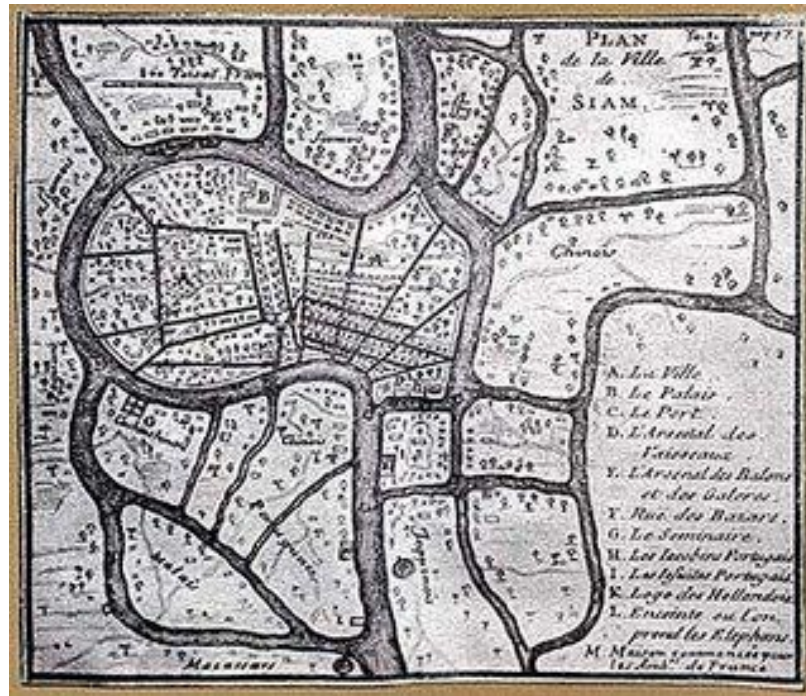 PLAN
de la Ville
de
SIAM.
Chinois
A. La Ville.
B. Le Palais.
C. Le Port.
D. L'Arsenal des
Vaisseaux.
Y. L'Arsenal des Balons
et des Galeres.
Y. Rue des Bazars.
G. Le Seminaire.
H. Les Iacobins Portugais
I. Les Jesuites Portugais
K. Loge des Hollandois
L. Enceinte ou l'on
prend les Elephans.
M. Maison commencée pour
de France
Chinois
Malais
Macassars
A
B
A
G